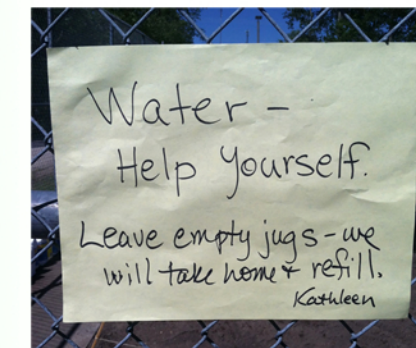 Water -
Help Yourself.
Leave empty jugs - we
will take home + refill.
Kathleen